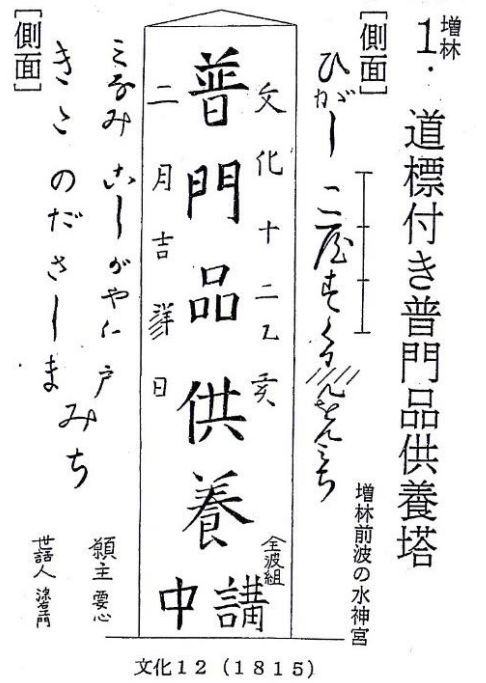 増林
1. 道標付き普門品供養塔
増林前波の水神宮
[側面]
ひがし
文化十二乙亥
普門品供養
全波組
講中
二月吉祥日
[側面]
みなみ こしがや 戸
みち
きた のだ さしま
願主 要心
世話人
文化12(1815)